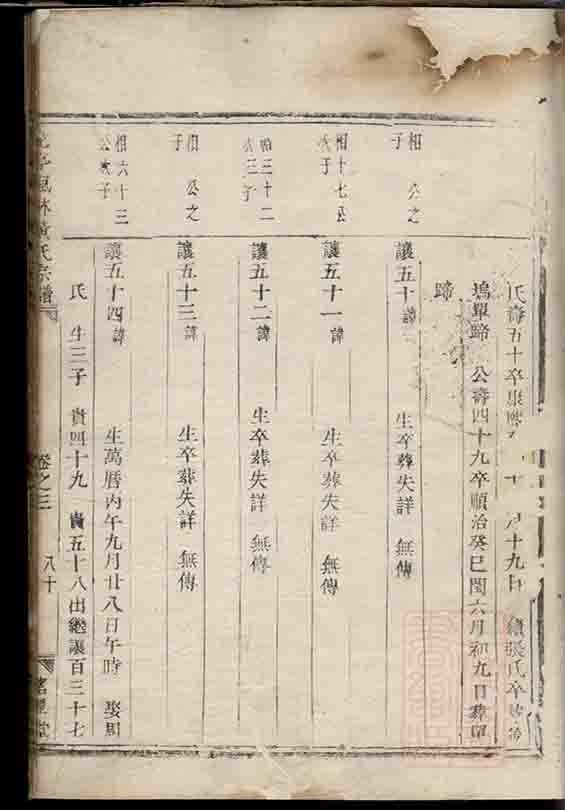 氏壽五十卒 十九日 續張氏卒
塢單蹄 公壽四十九卒順治癸巳閏六月初九日葬單
蹄
相 公之
子
讓五十 諱 生卒葬失詳 無傳
相十七公
次子
讓五十一諱 生卒葬失詳 無傳
三十二
三子
讓五十二諱 生卒葬失詳 無傳
相 公之
子
讓五十三諱 生卒葬失詳 無傳
相六十三
公次子
讓五十四諱 生萬曆丙午九月廿八日午時 娶周
氏 生三子 貴四十九 貴五十八出繼讓百三十七
林黃氏宗譜 卷之三 八十 堂